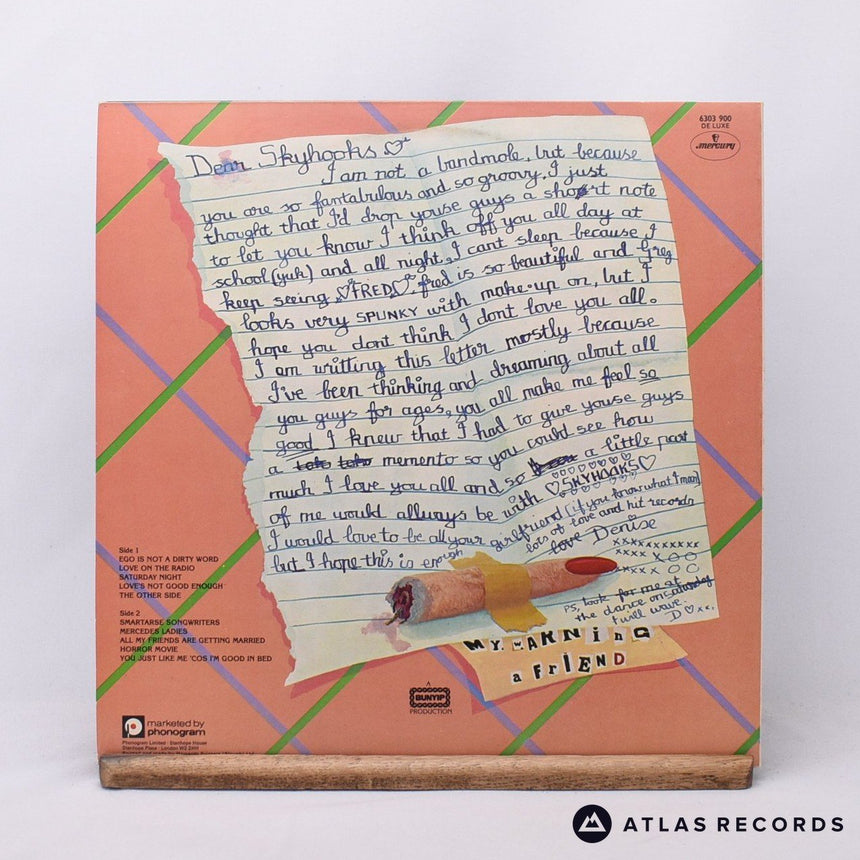 6303 900
DE LUXE
mercury
Dear Skyhooks
I am not a bandmole, but because
you are so fantabulous and so groovy. I just
thought that I'd drop youse guys a short note
to let you know I think off you all day at
school (yuk) and all night, I cant sleep because I
keep seeing FRED. fred is so beautiful and Greg
looks very SPUNKY with make-up on, but I
hope you dont think I dont love you all.
I am writting this letter mostly because
I've been thinking and dreaming about all
you guys for ages, you all make me feel so
good I knew that I had to give youse guys
a memento so you could see how
much I love you all and so a little part
of me would allways be with SKYHOOKS
I would love to be all your girlfriend (if you know what I mean)
but I hope this is enough
lots of love and hit records
love Denise
xxxxxxxxxx
xxxx x OO
xxxx x OO
PS, look for me at
the dance on saturday
I will wave.
D xx.
MY. WARNiNG
a FriEND
Side 1
EGO IS NOT A DIRTY WORD
LOVE ON THE RADIO
SATURDAY NIGHT
LOVE'S NOT GOOD ENOUGH
THE OTHER SIDE
Side 2
SMARTARSE SONGWRITERS
MERCEDES LADIES
ALL MY FRIENDS ARE GETTING MARRIED
HORROR MOVIE
YOU JUST LIKE ME 'COS I'M GOOD IN BED
A
BUNYIP
PRODUCTION
marketed by
phonogram
Phonogram Limited · Stanhope House
Stanhope Place · London W2 2HH
ATLAS RECORDS